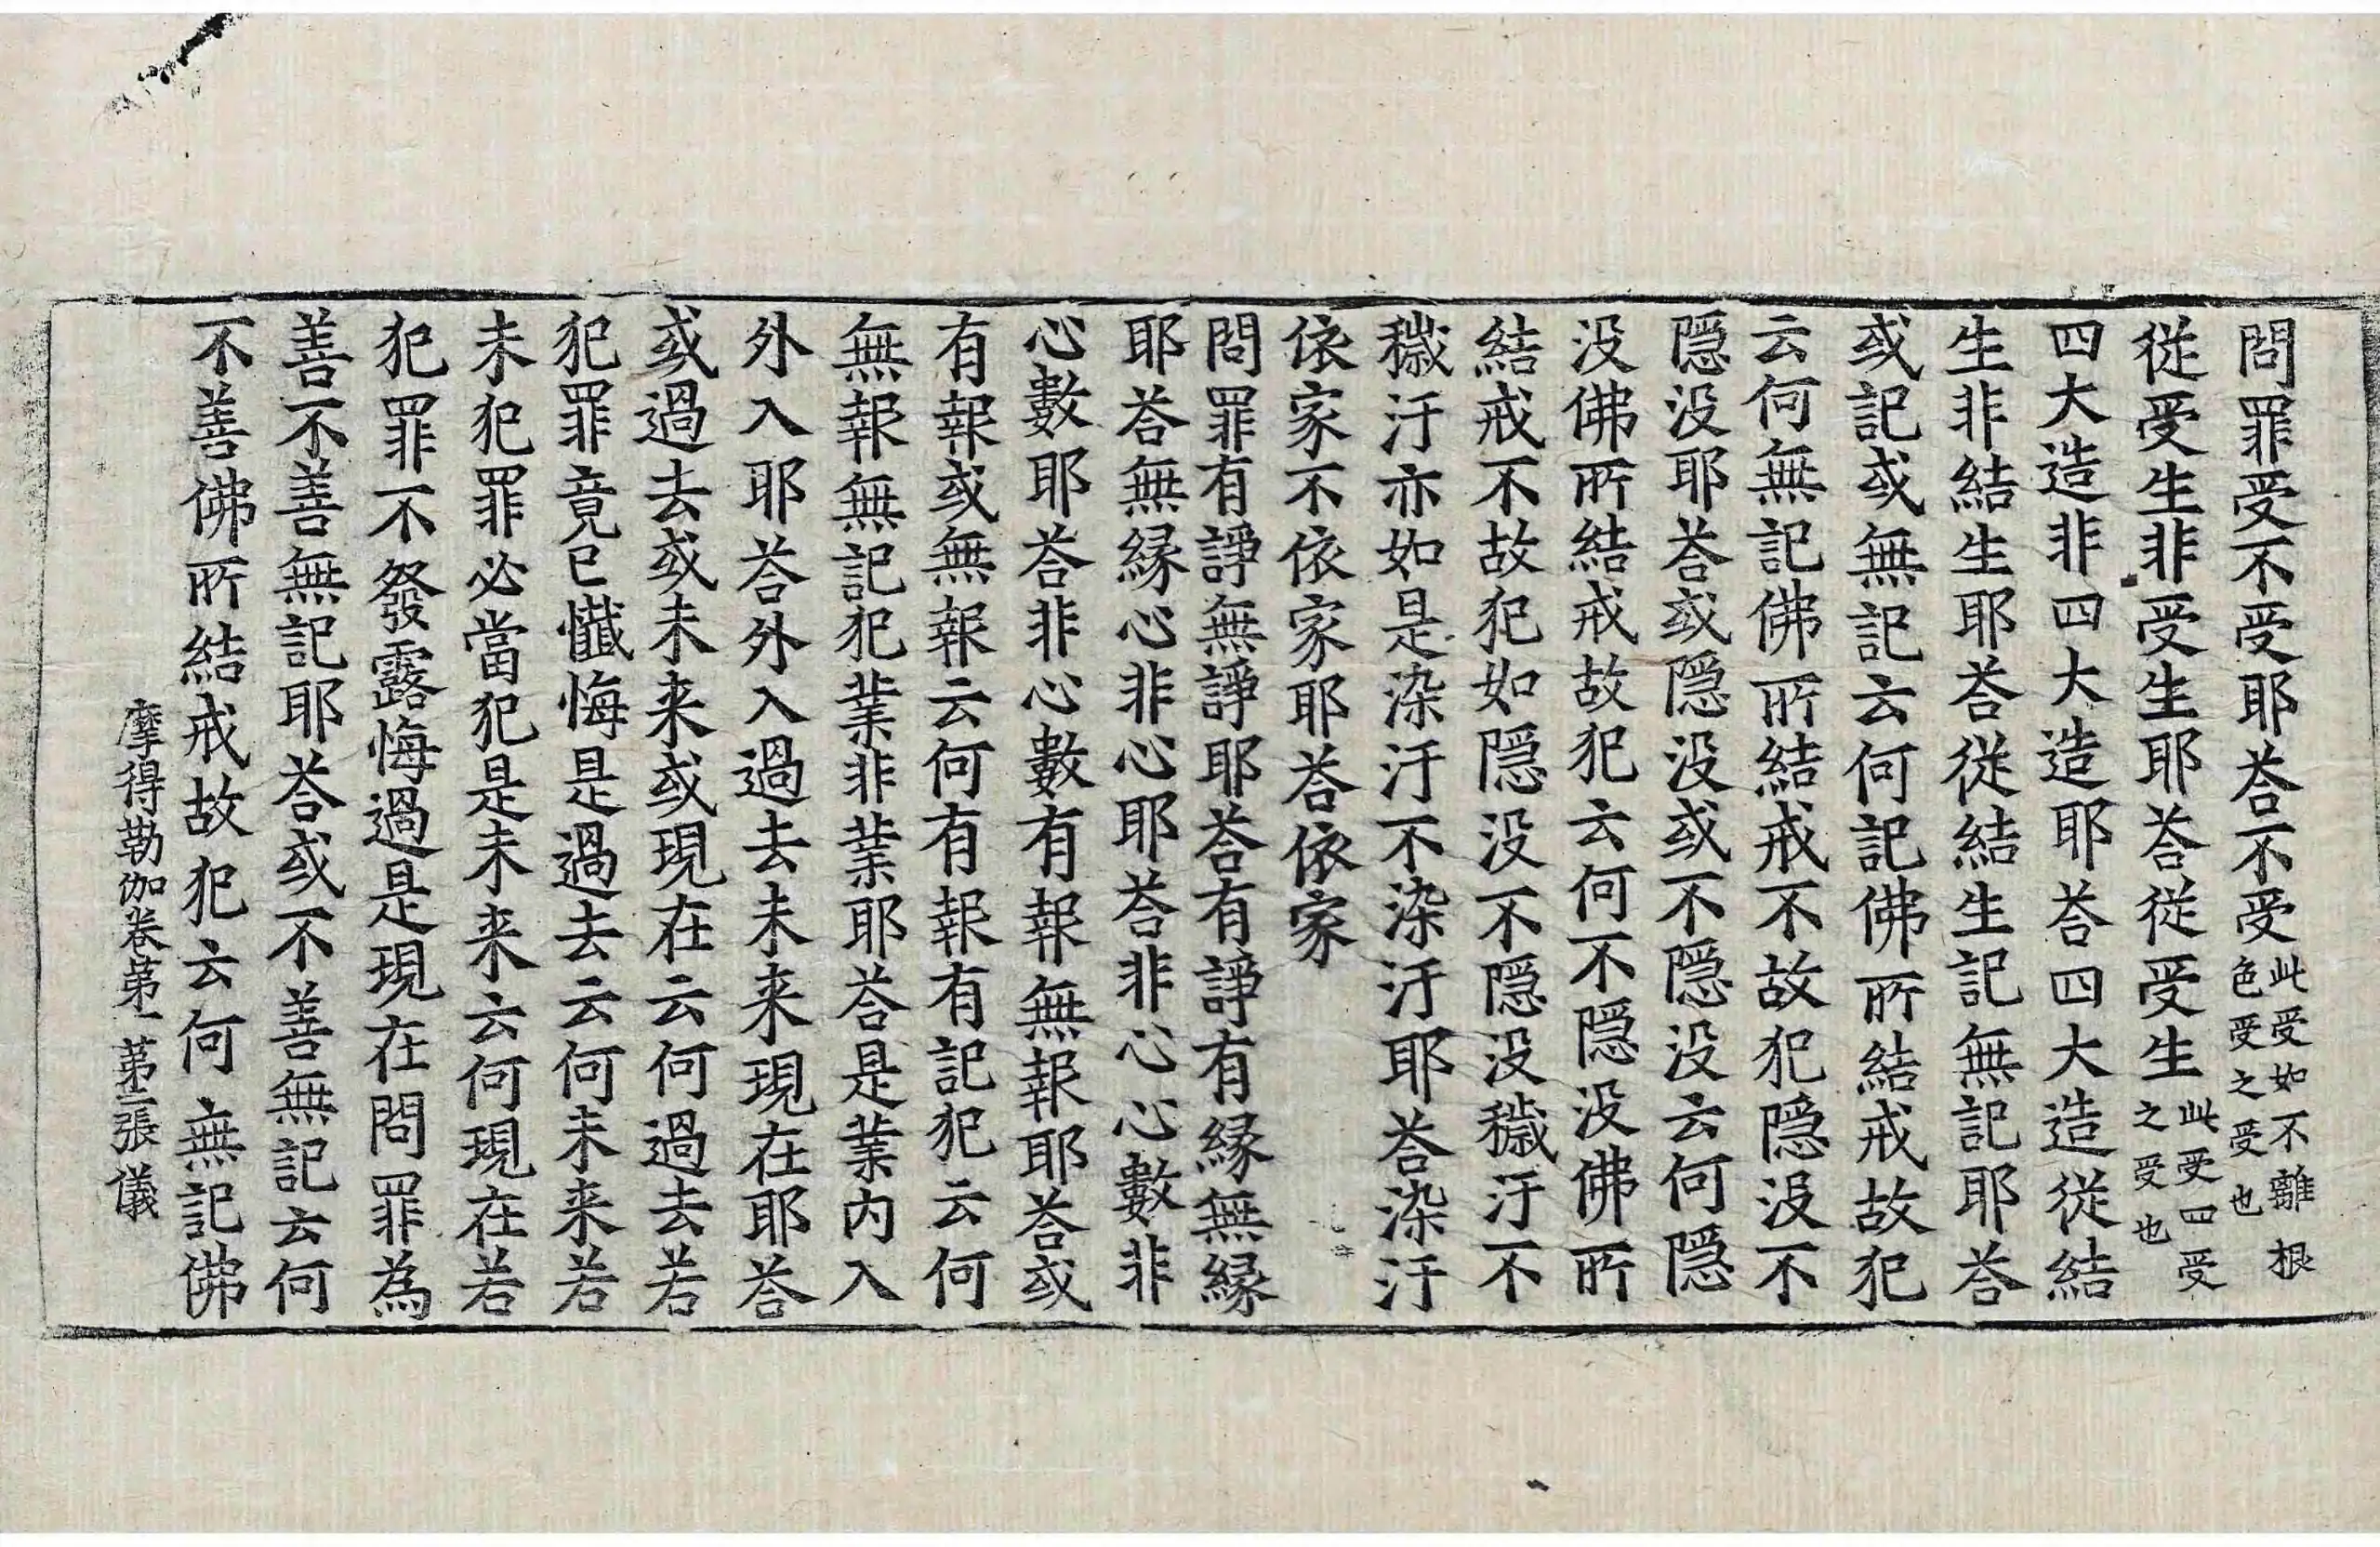 問罪受不受耶荅不受此受如不離根色受之受也
從受生非受生耶荅從受生此受四受之受也
四大造非四大造耶荅四大造從結
生非結生耶荅從結生記無記耶荅
或記或無記云何記佛所結戒故犯
云何無記佛所結戒不故犯隱没不
隱没耶荅或隱没或不隱没云何隱
没佛所結戒故犯云何不隱没佛所
結戒不故犯如隱没不隱没穢汙不
穢汙亦如是染汙不染汙耶荅染汙
依家不依家耶荅依家
問罪有諍無諍耶荅有諍有緣無緣
耶荅無緣心非心耶荅非心心數非
心數耶荅非心數有報無報耶荅或
有報或無報云何有報有記犯云何
無報無記犯業非業耶荅是業内入
外入耶荅外入過去未来現在耶荅
或過去或未来或現在云何過去若
犯罪竟已懺悔是過去云何未来若
未犯罪必當犯是未来云何現在若
犯罪不發露悔過是現在問罪為
善不善無記耶荅或不善無記云何
不善佛所結戒故犯云何無記佛
摩得勒伽卷第一 第三張 儀